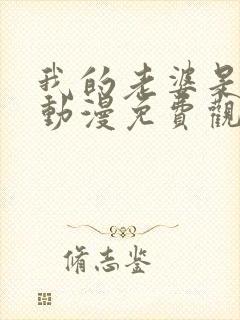 我的老婆
動漫免費觀
脩志鉴